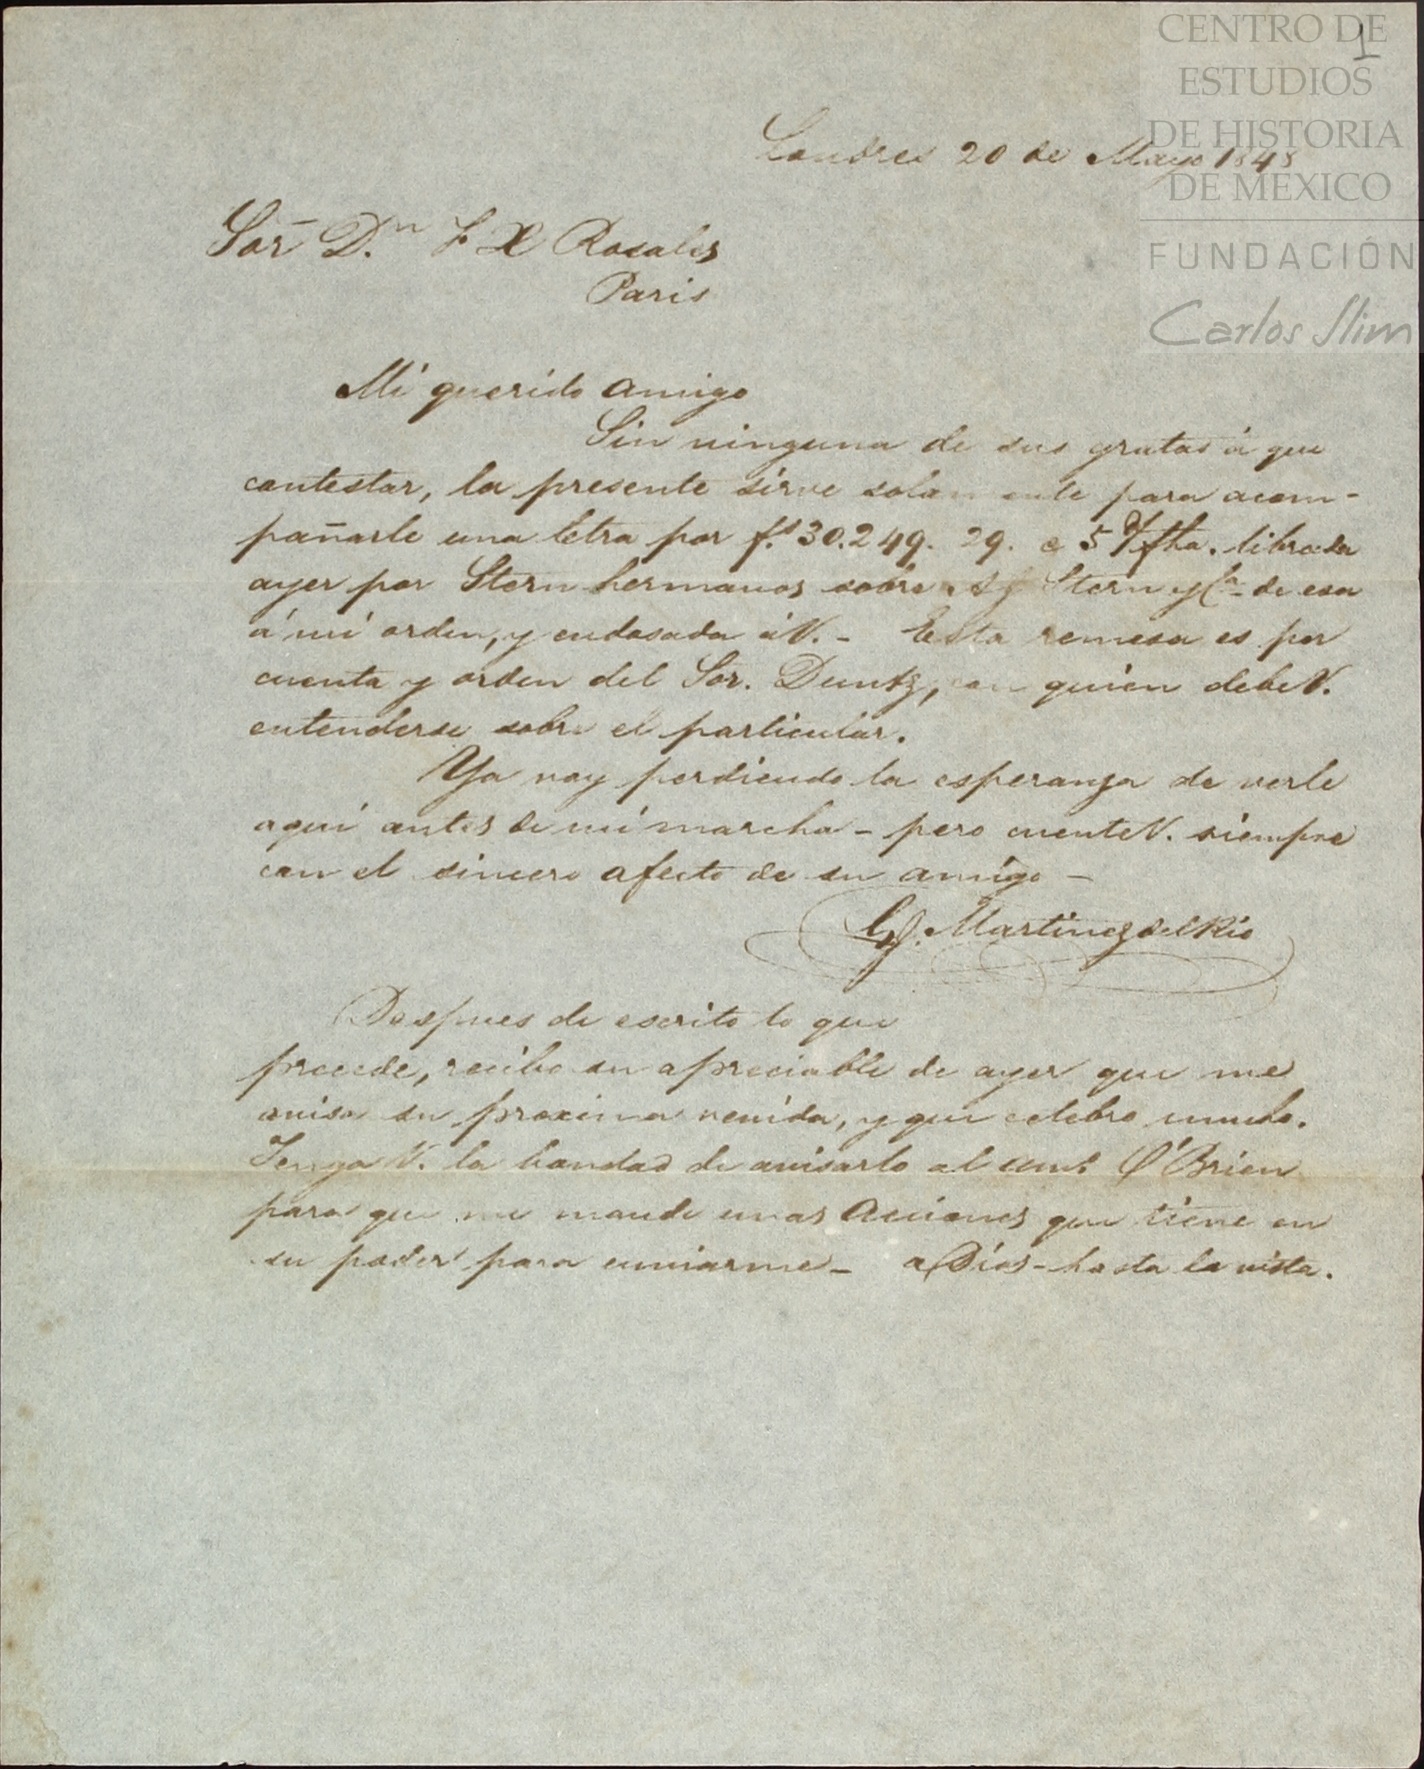 CENTRO DE
ESTUDIOS
DE HISTORIA
DE MÉXICO
FUNDACIÓN
Carlos Slim
1
Londres 20 de Mayo 1848
Sor D.n F X Rosales
Paris
Mi querido amigo
Sin ninguna de sus gratas á que
contestar, la presente sirve solamente para acom-
pañarle una letra por f.s 30.249. 29. a 5 d/fha. librada
ayer por Stern hermanos sobre Stern y Ca. de esa
á mi orden, y endosada á V. - Esta remesa es por
cuenta y orden del Sor. Duntz, con quien debe V.
entenderse sobre el particular.
Ya voy perdiendo la esperanza de verle
aqui antes de mi marcha - pero cuente V. siempre
con el sincero afecto de su amigo -
Martinez del Rio
Despues de escrito lo que
precede, recibo su apreciable de ayer que me
avisa su proxima venida, y que celebro mucho.
Tenga V. la bondad de avisarlo al am.o O'Brien
para que me mande unas Acciones que tiene en
su poder para enviarme - a Dios - hasta la vista.